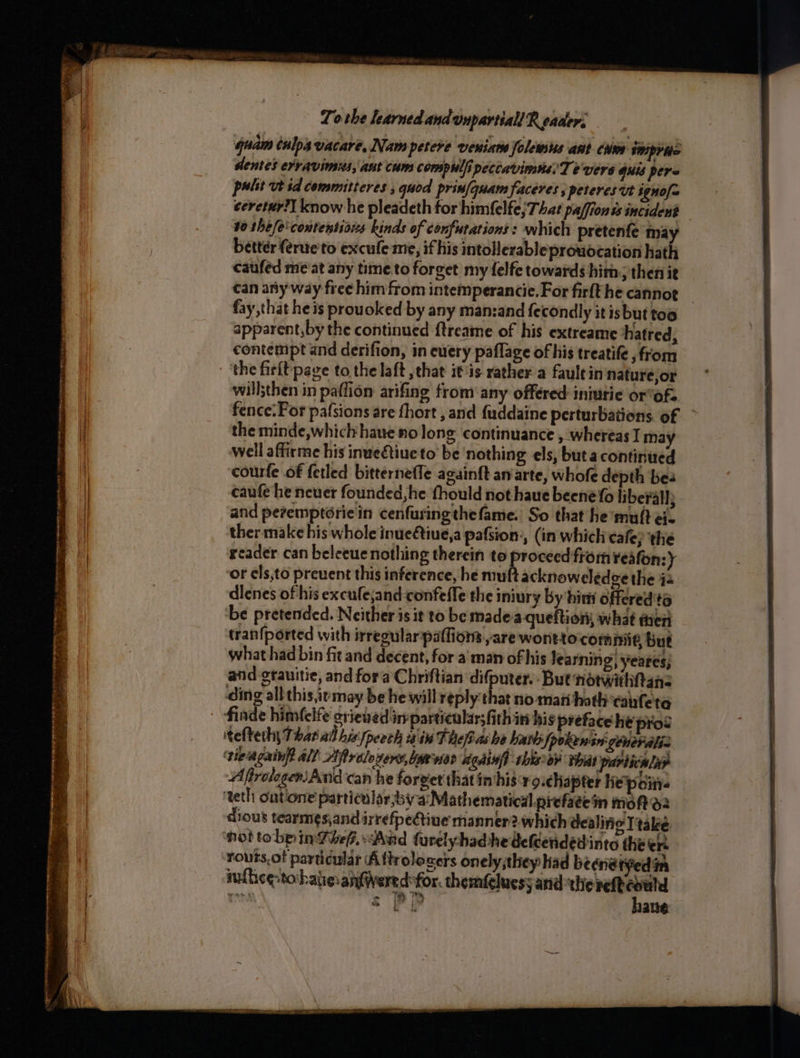 To the learned and vnpartiall Reader.
quàm culpa vacare. Nam petere veniam solemus aut cùm impru-
dentes erravimus, aut cum compulsi peccavimus. Te vero quis per-
pulit vt id committeres, quod prinsquam faceres, peteres vt ignos-
ceretur? I know he pleadeth for himselfe, That passion is incident
to these contentious kinds of confutations: which pretense may
better serue to excuse me, if his intollerable prouocation hath
caused me at any time to forget my selfe towards him, then it
can any way free him from intemperancie. For first he cannot
say, that he is prouoked by any man: and secondly it is but too
apparent, by the continued streame of his extreame hatred,
contempt and derision, in euery passage of his treatise, from
the first page to the last, that it is rather a fault in nature, or
will; then in passion arising from any offered iniurie or of-
fence: For passions are short, and suddaine perturbations of
the minde, which haue no long continuance, whereas I may
well affirme his inuectiue to be nothing els, but a continued
course of setled bitternesse against an arte, whose depth be-
cause he neuer founded, he should not haue beene so liberall,
and peremptorie in censuring the same. So that he must ei-
ther make his whole inuectiue, a passion, (in which case, the
reader can beleeue nothing therein to proceed from reason:)
or els, to preuent this inference, he must acknowledge the ia-
dlenes of his excuse, and confesse the iniury by him offered to
be pretended. Neither is it to be made a question, what men
transported with irregular passions, are wont to commit, but
what had bin fit and decent, for a man of his learning, yeares,
and grauitie, and for a Christian disputer. But notwithstan-
ding all this, it may be he will reply that no man hath cause to
finde himselfe grieued in particular; sith in his preface he pro-
testeth, That all his speech is in Thesi as he hath spoken in generali-
tie against all Astrologers, but not against this or that particular
Astrologer. And can he forget that in his 19. chapter he poin-
teth out one particular, by a Mathematicall preface in most o-
dious tearmes, and irrespectiue manner? which dealing I take
not to be in Thesi. And surely had he descended into the er-
rours, of particular Astrologers onely, they had beene tyed in
iustice to haue answered for themselues; and the rest could
haue